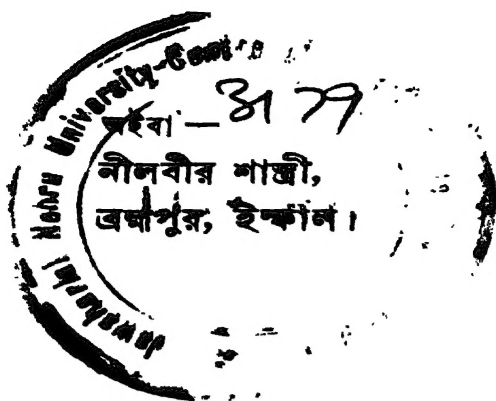 Jawaharlal Nehru University-
অইবা —
নীলবীর শাস্ত্রী,
ব্রহ্মাপুর, ইম্ফাল।